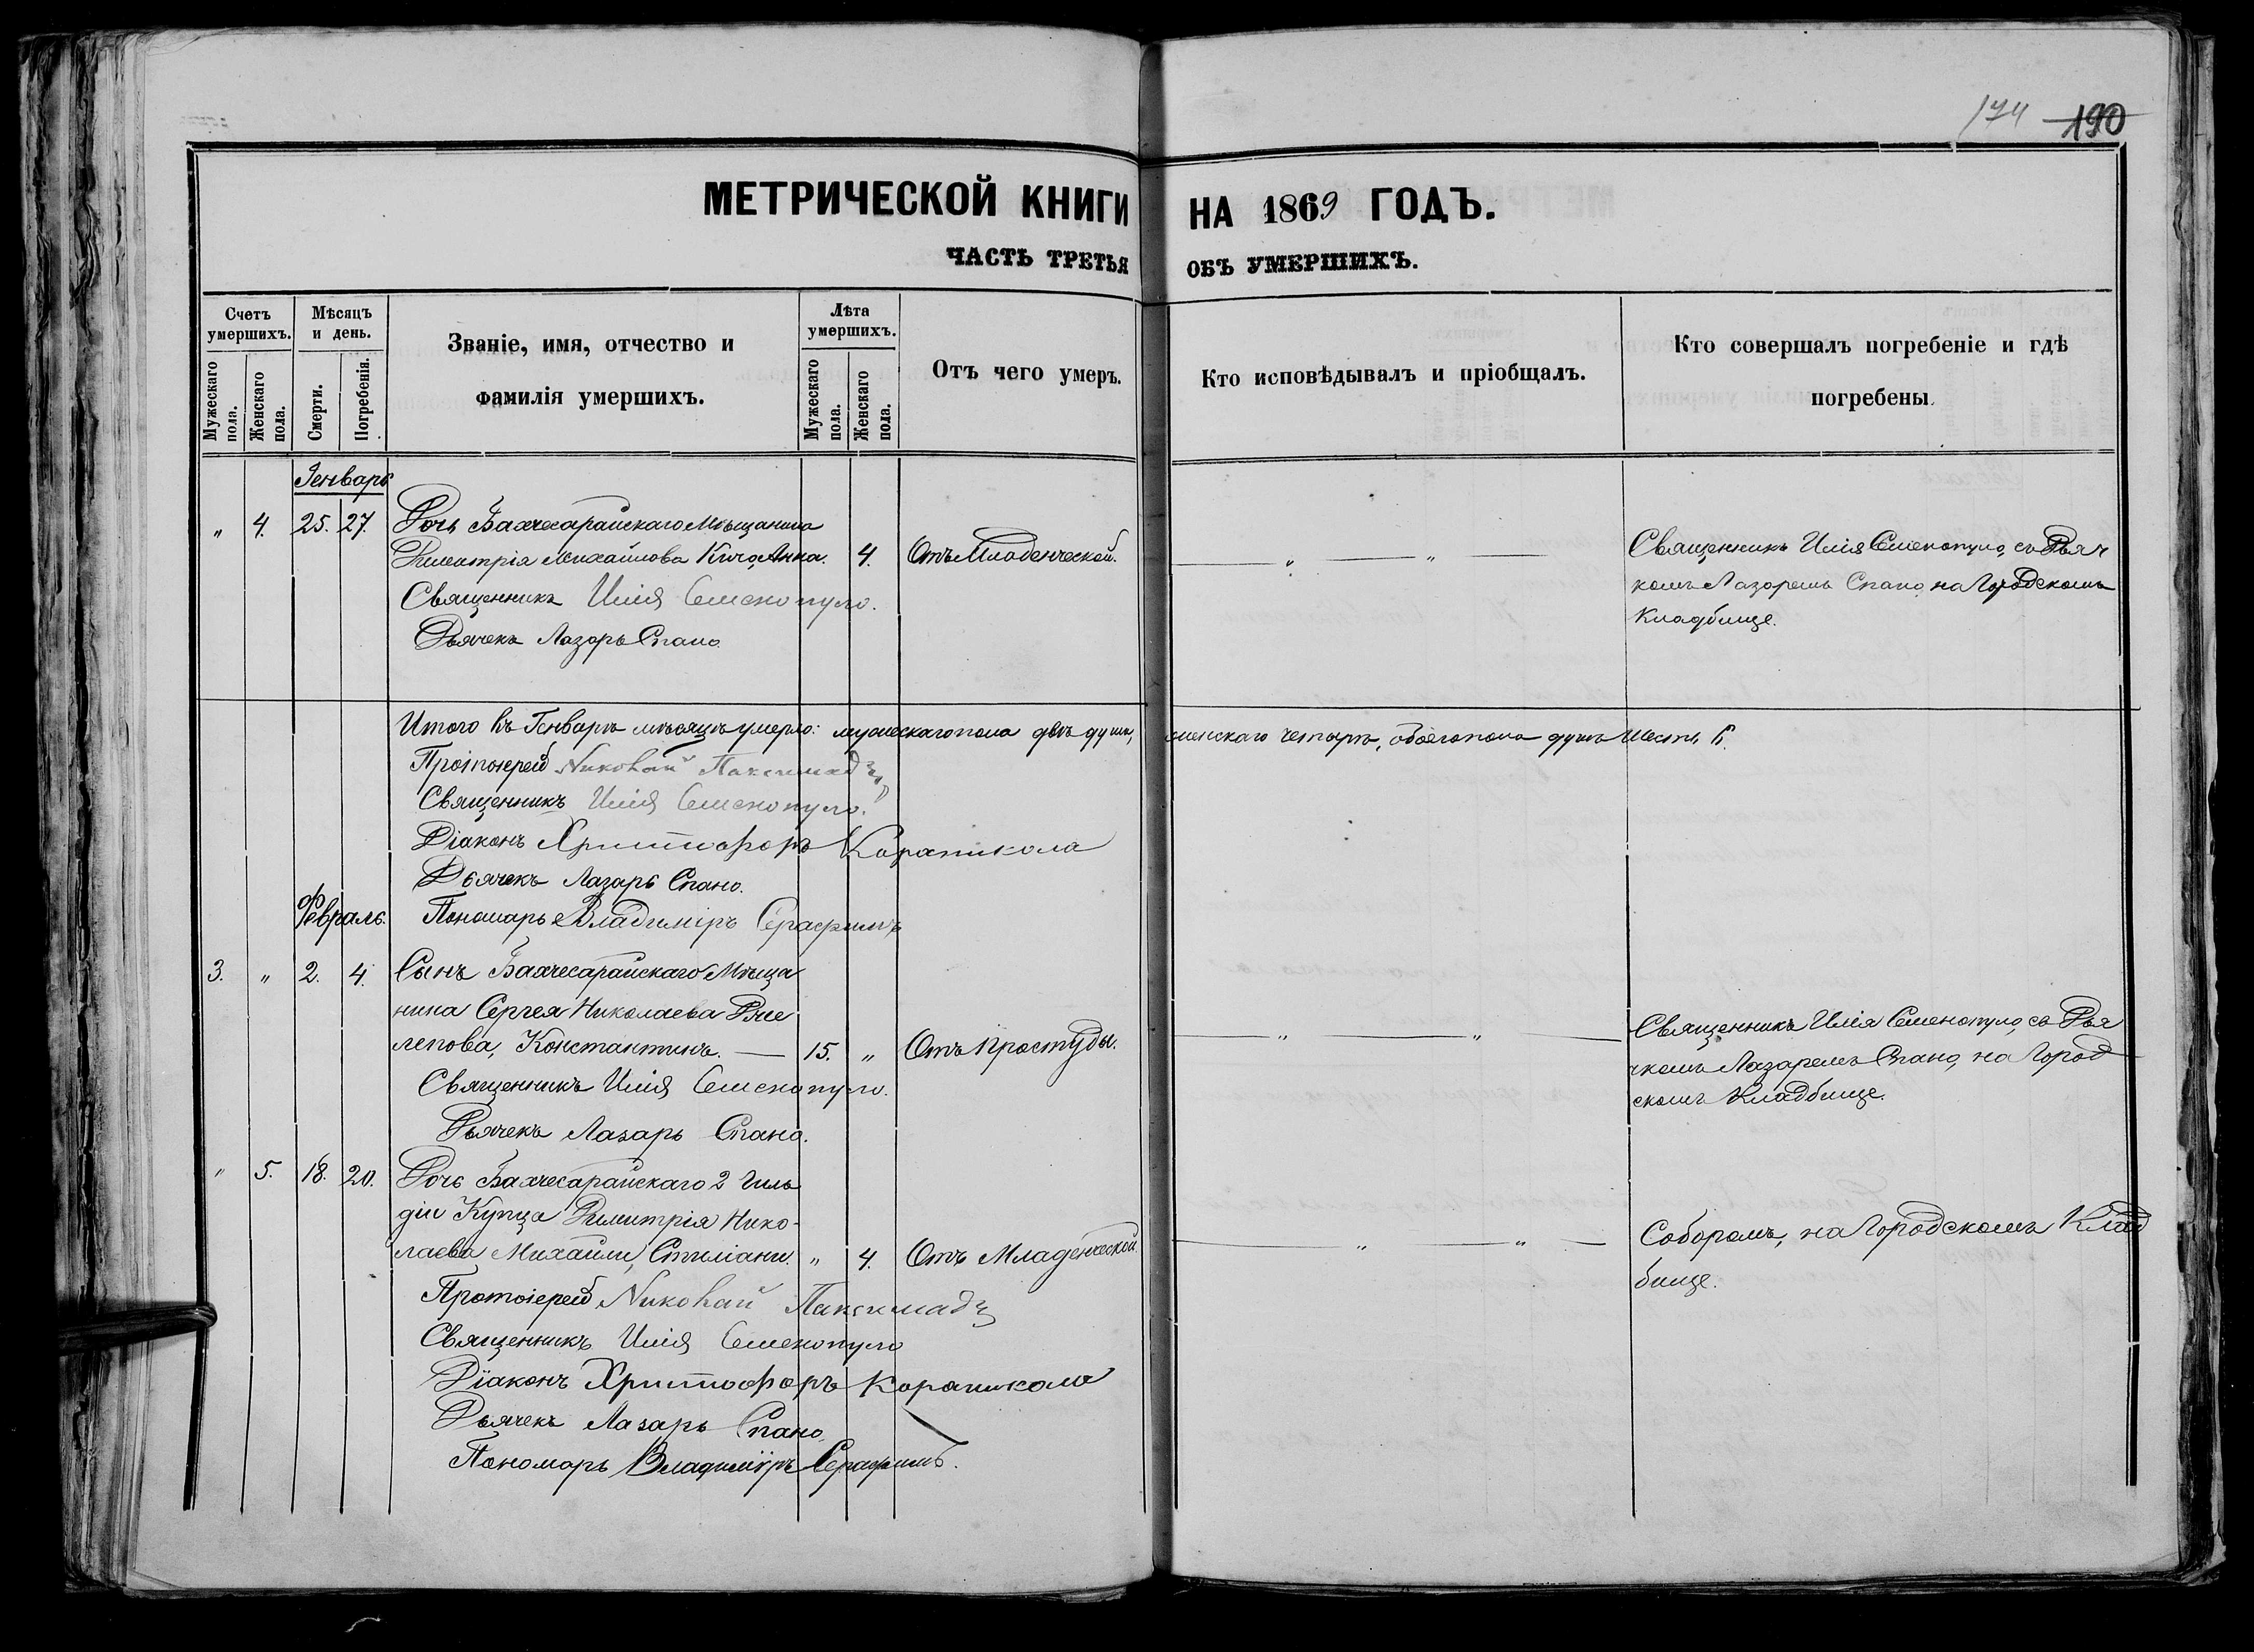 174 190
МЕТРИЧЕСКОЙ КНИГИ НА 1869 ГОДЪ.
ЧАСТЬ ТРЕТЬЯ ОБЪ УМЕРШИХЪ.
Счетъ умершихъ.
Мужескаго пола.
Женскаго пола.
Мѣсяцъ и день.
Смерти.
Погребенія.
Званіе, имя, отчество и
фамилія умершихъ.
Лѣта умершихъ.
Мужескаго пола.
Женскаго пола.
Отъ чего умеръ.
Кто исповѣдывалъ и пріобщалъ.
Кто совершалъ погребеніе и гдѣ
погребены.
Генварь
„ 4. 25. 27. Дочь Бахчесарайскаго Мѣщанина
Димитрія Михайлова Кичо, Анна. 4. Отъ Младенческой. „ „
Священникъ Илія Семенопуло.
Дьячекъ Лазарь Спано.
Священникъ Илія Семенопуло, съ Дьяч
комъ Лазаремъ Спано, на Городскомъ
Кладбище.
Итого въ Генварѣ мѣсяцѣ умерло: мужескаго пола двѣ души, женскаго четыре, обоего пола душъ шесть 6.
Протоіерей Николай Паксимади
Священникъ Илія Семенопуло.
Діаконъ Христофоръ Караникола
Дьячекъ Лазарь Спано.
Пономарь Владиміръ Серафимъ
Февраль.
3. „ 2. 4. Сынъ Бахчесарайскаго Мѣща
нина Сергея Николаева
лепова, Константинъ. — 15. „ Отъ простуды. „ „
Священникъ Илія Семенопуло.
Дьячекъ Лазарь Спано.
Священникъ Илія Семенопуло, съ Дья
чкомъ Лазаремъ Спано, на Город
скомъ Кладбище.
„ 5. 18. 20. Дочь Бахчесарайскаго 2 Гиль
діи Купца Димитрія Нико-
лаева Михайли, Стиліани. „ 4. Отъ Младенческой. „ „
Соборомъ, на ГородскомъКлад
бище.
Протоіерей Николай Паксимади
Священникъ Илія Семенопуло
Діаконъ Христофоръ Караникола
Дьячекъ Лазарь Спано.
Пономарь Владиміръ Серафимъ.